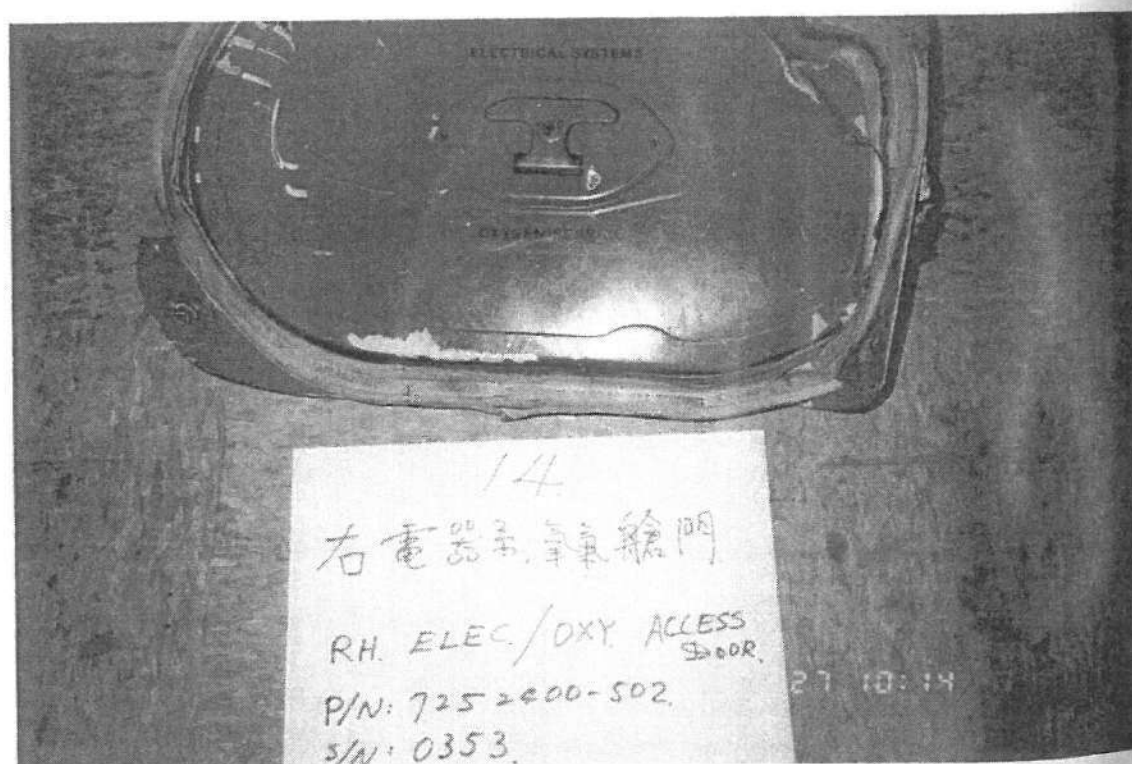 ELECTRICAL SYSTEMS
14
右電器系,氧氣艙門
RH. ELEC./OXY. ACCESS
DOOR.
P/N: 7252400-502.
S/N: 0353.
27 10:14